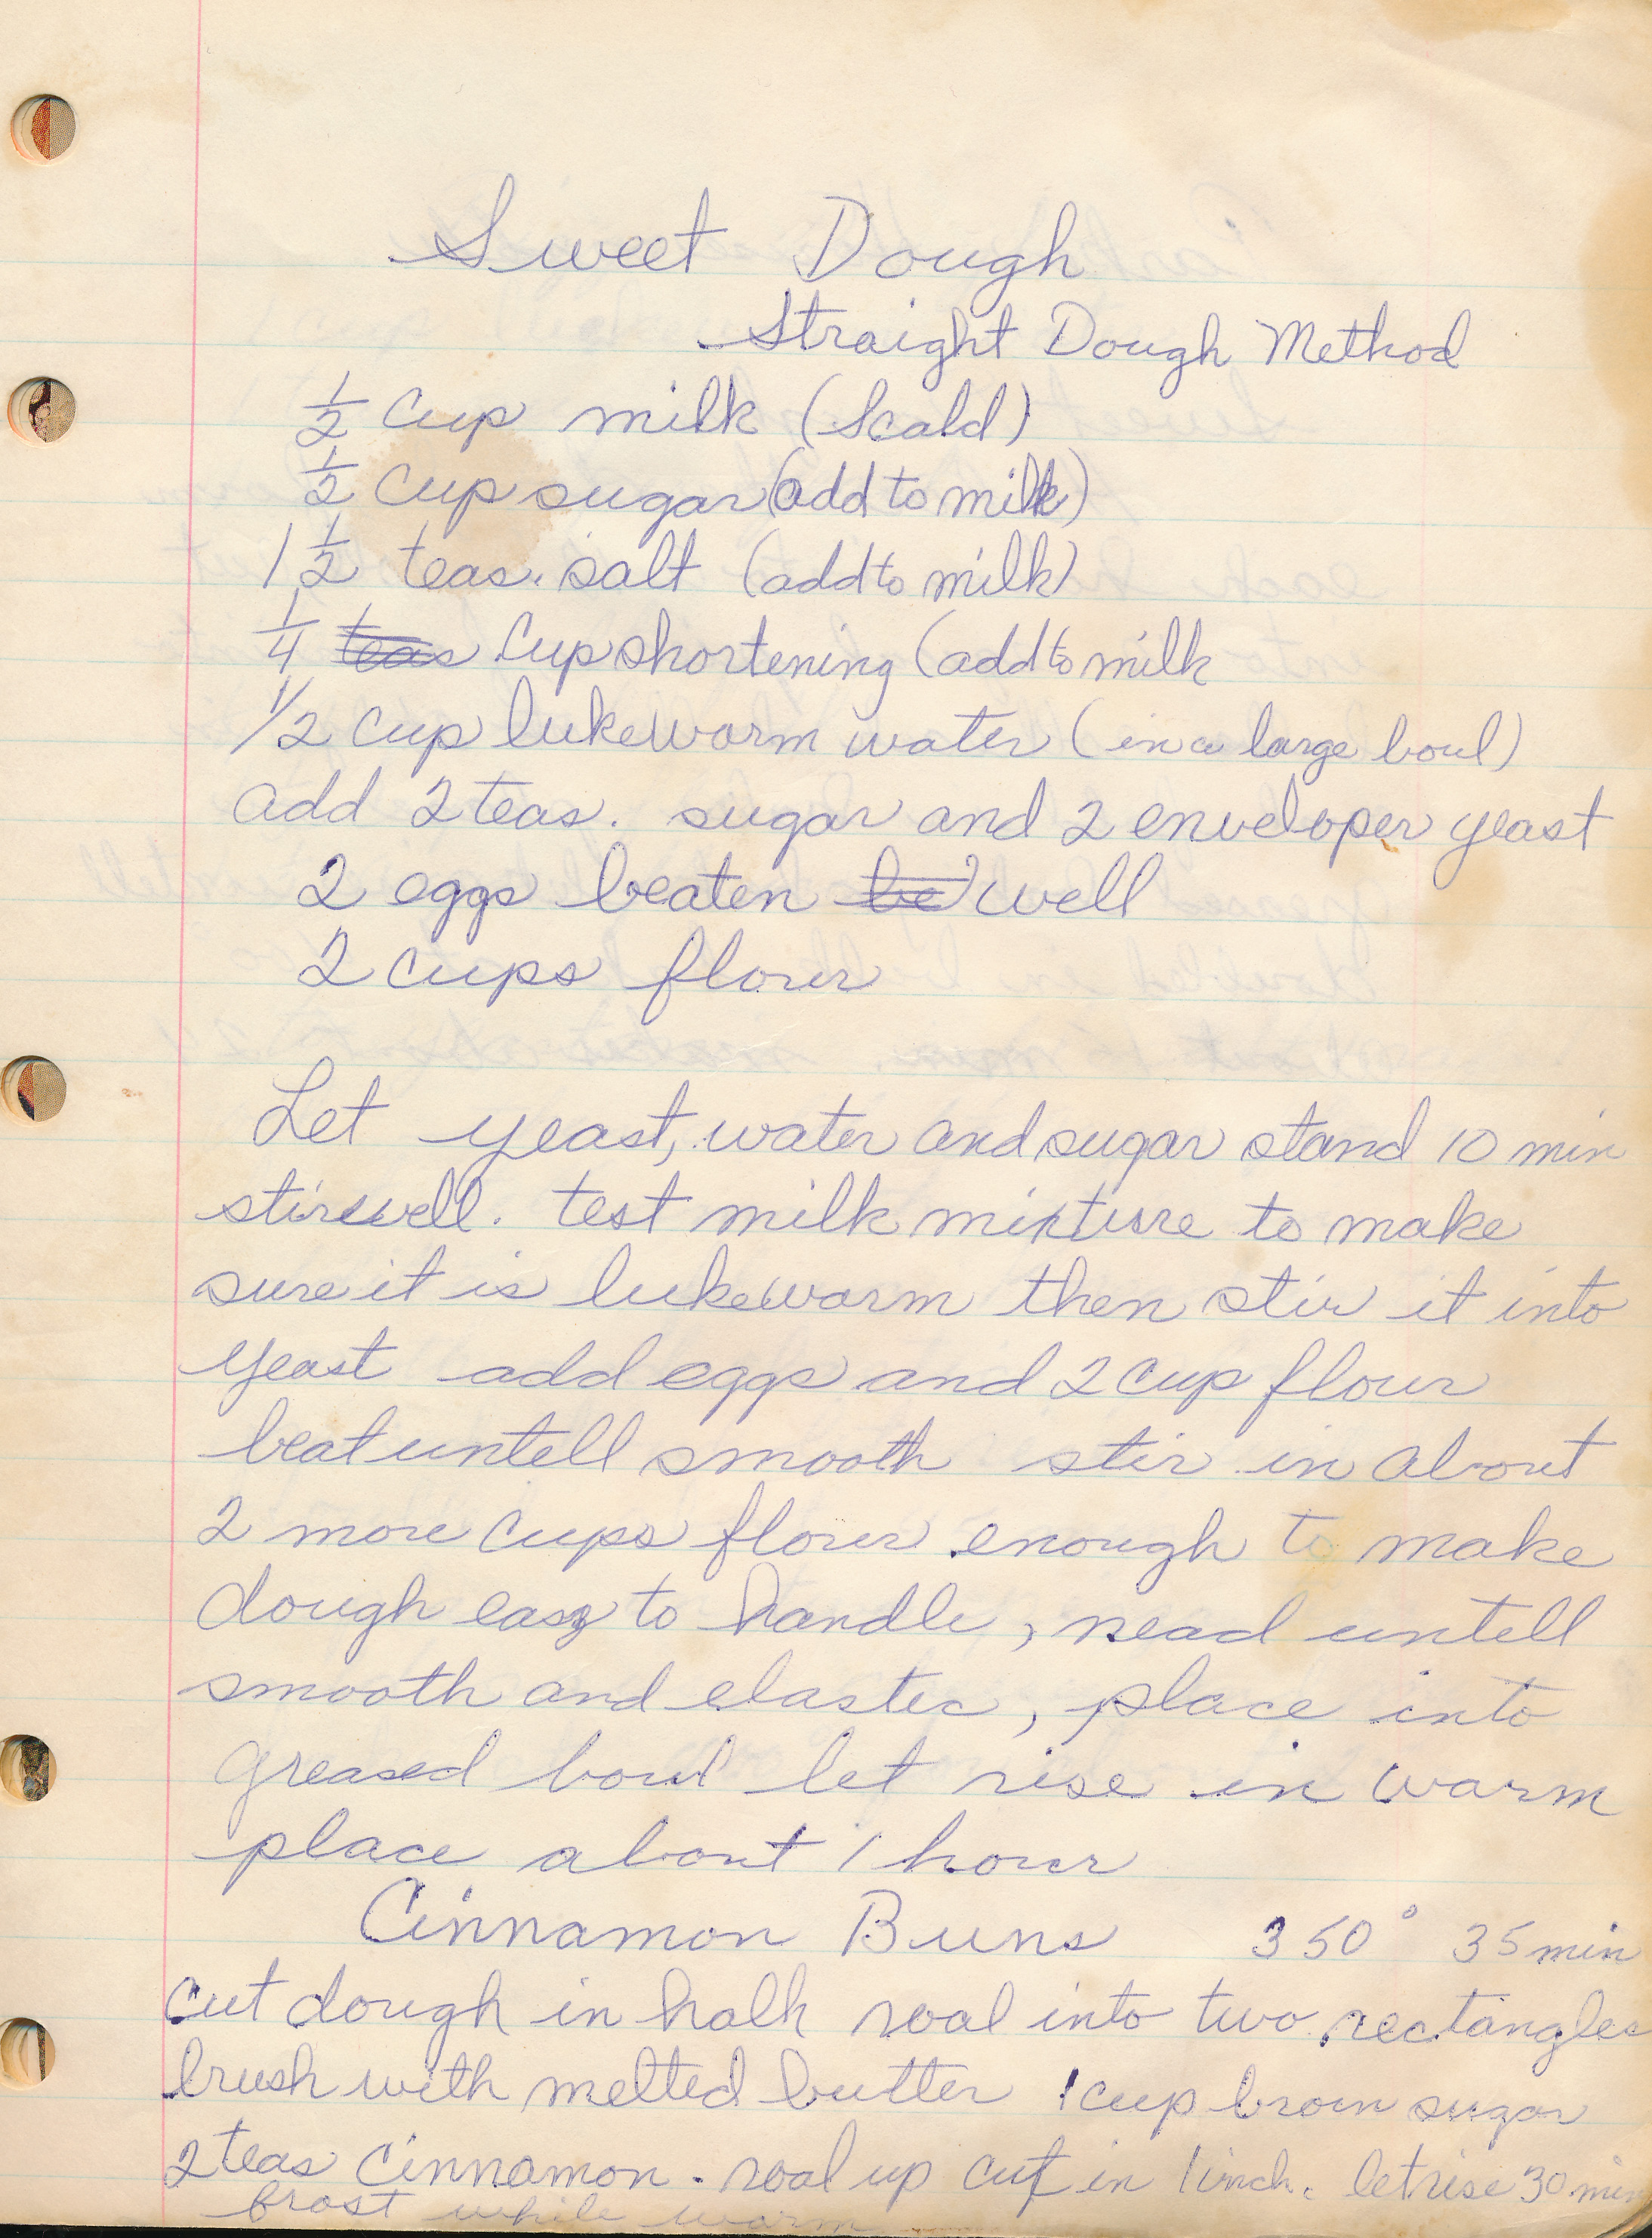 Sweet Dough
Straight Dough Method
1/2 cup milk (Scald)
1/2 cup sugar (add to milk)
1 1/2 teas. salt (add to milk)
1/4 teas Cup shortening (add to milk
1/2 cup lukewarm water (in a large boul)
add 2 teas. sugar and 2 envelopes yeast
2 eggs beaten be well
2 cups flour
Let yeast, water and sugar stand 10 min
stir well. test milk mixture to make
sure it is lukewarm then stir it into
yeast add eggs and 2 cup flour
beat untell smooth stir in about
2 more cups flour enough to make
dough easy to handle, nead untell
smooth and elastec, place into
greased boul let rise in warm
place about 1 hour
Cinnamon Buns 350° 35 min
cut dough in half roal into two rectangles
brush with melted butter 1 cup brown sugar
2 teas Cinnamon. roal up cut in 1 inch. let rise 30 min
frost while warm